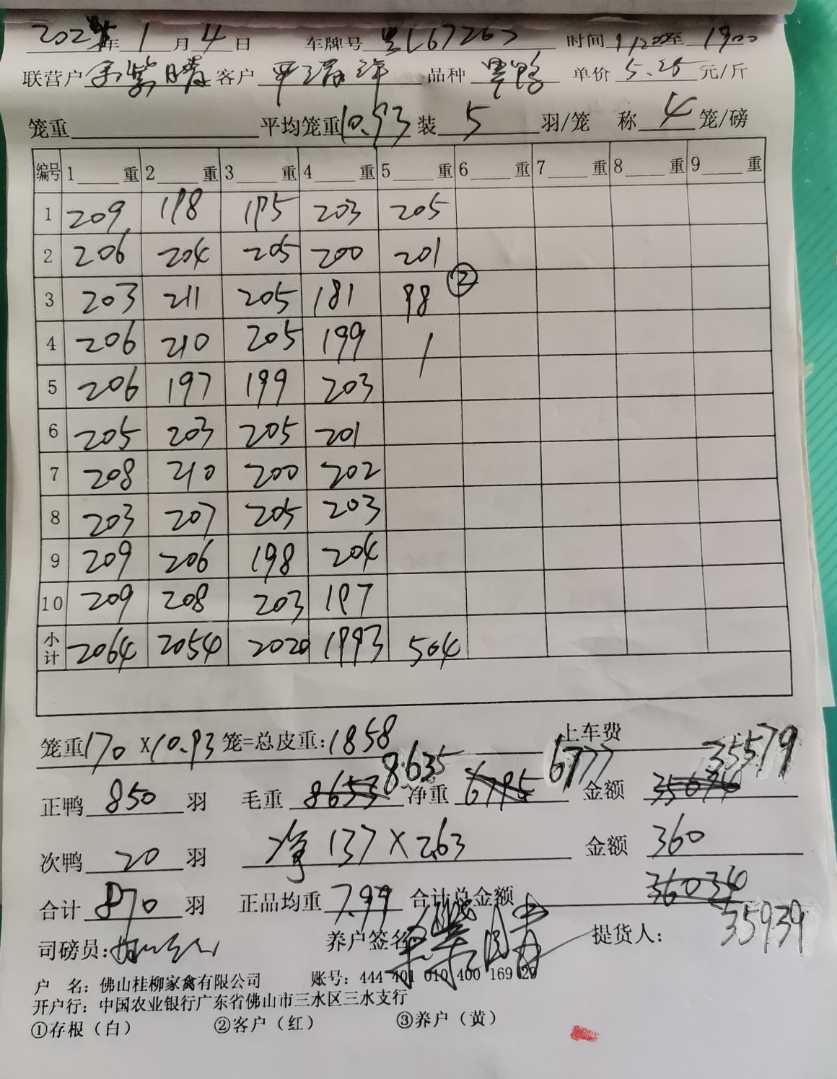 202 年 1 月 4 日 车牌号 67263 时间 至 1900
联营户 紫晴 客户 品种 单价 5.25 元/斤
笼重 平均笼重 10.93 装 5 羽/笼 称 4 笼/磅
编号 1 重 2 重 3 重 4 重 5 重 6 重 7 重 8 重 9 重
1 209 198 195 203 205
2 206 204 205 200 201
3 203 211 205 181 98 ②
4 206 210 205 199 1
5 206 197 199 203
6 205 203 205 201
7 208 210 200 202
8 203 207 205 203
9 209 206 198 204
10 209 208 203 197
小计 2064 2054 2020 1993 504
笼重 170 × 10.93 笼=总皮重: 1858 上车费
8.635 6777 35579
正鸭 850 羽 毛重 8653 净重 6795 金额
次鸭 20 羽 净 137 × 2.63 金额 360
合计 870 羽 正品均重 7.99 合计总金额 36034
35939
司磅员: 养户签名 提货人:
户 名: 佛山桂柳家禽有限公司 账号: 444 401 010 400 169 29
开户行: 中国农业银行广东省佛山市三水区三水支行
①存根（白） ②客户（红） ③养户（黄）